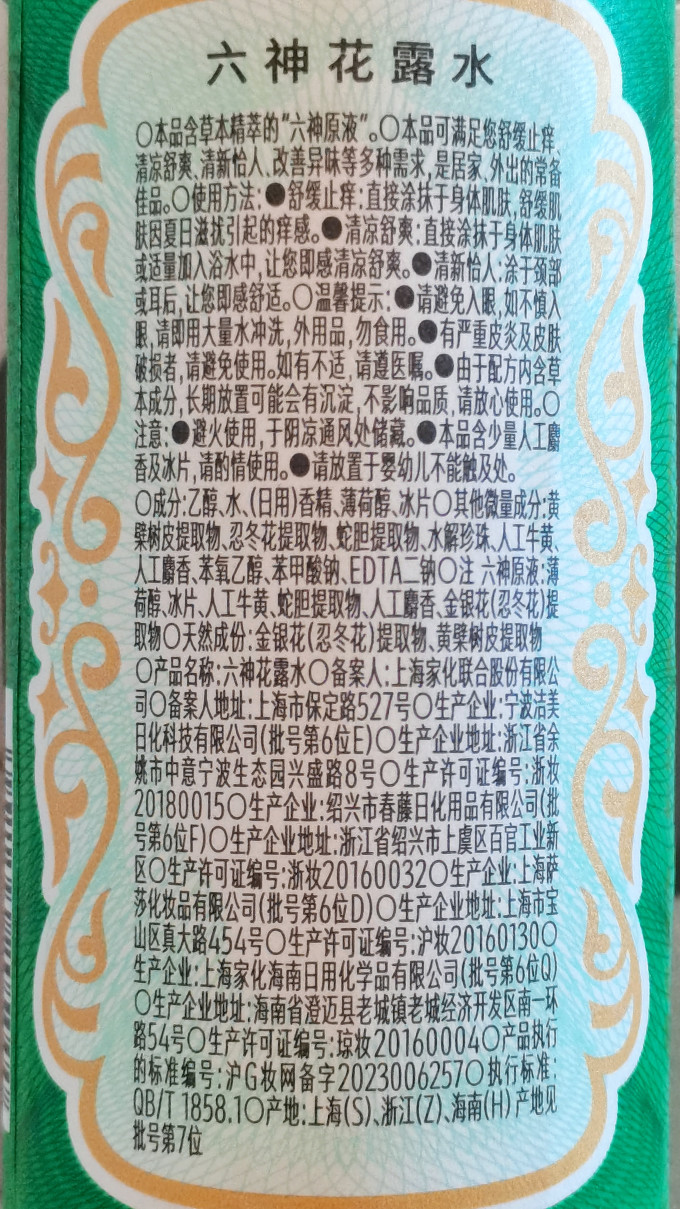 六神花露水
○本品含草本精萃的“六神原液”。○本品可满足您舒缓止痒、
清凉舒爽、清新怡人、改善异味等多种需求,是居家、外出的常备
佳品。○使用方法:●舒缓止痒:直接涂抹于身体肌肤,舒缓肌
肤因夏日滋扰引起的痒感。●清凉舒爽:直接涂抹于身体肌肤
或适量加入浴水中,让您即感清凉舒爽。●清新怡人:涂于颈部
或耳后,让您即感舒适。○温馨提示:●请避免入眼,如不慎入
眼,请即用大量水冲洗,外用品,勿食用。●有严重皮炎及皮肤
破损者,请避免使用。如有不适,请遵医嘱。●由于配方内含草
本成分,长期放置可能会有沉淀,不影响品质,请放心使用。○
注意:●避火使用,于阴凉通风处储藏。●本品含少量人工麝
香及冰片,请酌情使用。●请放置于婴幼儿不能触及处。
○成分:乙醇、水、(日用)香精、薄荷醇、冰片○其他微量成分:黄
檗树皮提取物、忍冬花提取物、蛇胆提取物、水解珍珠、人工牛黄、
人工麝香、苯氧乙醇、苯甲酸钠、EDTA二钠○注 六神原液:薄
荷醇、冰片、人工牛黄、蛇胆提取物、人工麝香、金银花(忍冬花)提
取物○天然成份:金银花(忍冬花)提取物、黄檗树皮提取物
○产品名称:六神花露水○备案人:上海家化联合股份有限公
司○备案人地址:上海市保定路527号○生产企业:宁波洁美
日化科技有限公司(批号第6位E)○生产企业地址:浙江省余
姚市中意宁波生态园兴盛路8号○生产许可证编号:浙妆
20180015○生产企业:绍兴市春藤日化用品有限公司(批
号第6位F)○生产企业地址:浙江省绍兴市上虞区百官工业新
区○生产许可证编号:浙妆20160032○生产企业:上海萨
莎化妆品有限公司(批号第6位D)○生产企业地址:上海市宝
山区真大路454号○生产许可证编号:沪妆20160130○
生产企业:上海家化海南日用化学品有限公司(批号第6位Q)
○生产企业地址:海南省澄迈县老城镇老城经济开发区南一环
路54号○生产许可证编号:琼妆20160004○产品执行
的标准编号:沪G妆网备字2023006257○执行标准:
QB/T 1858.1○产地:上海(S)、浙江(Z)、海南(H)产地见
批号第7位